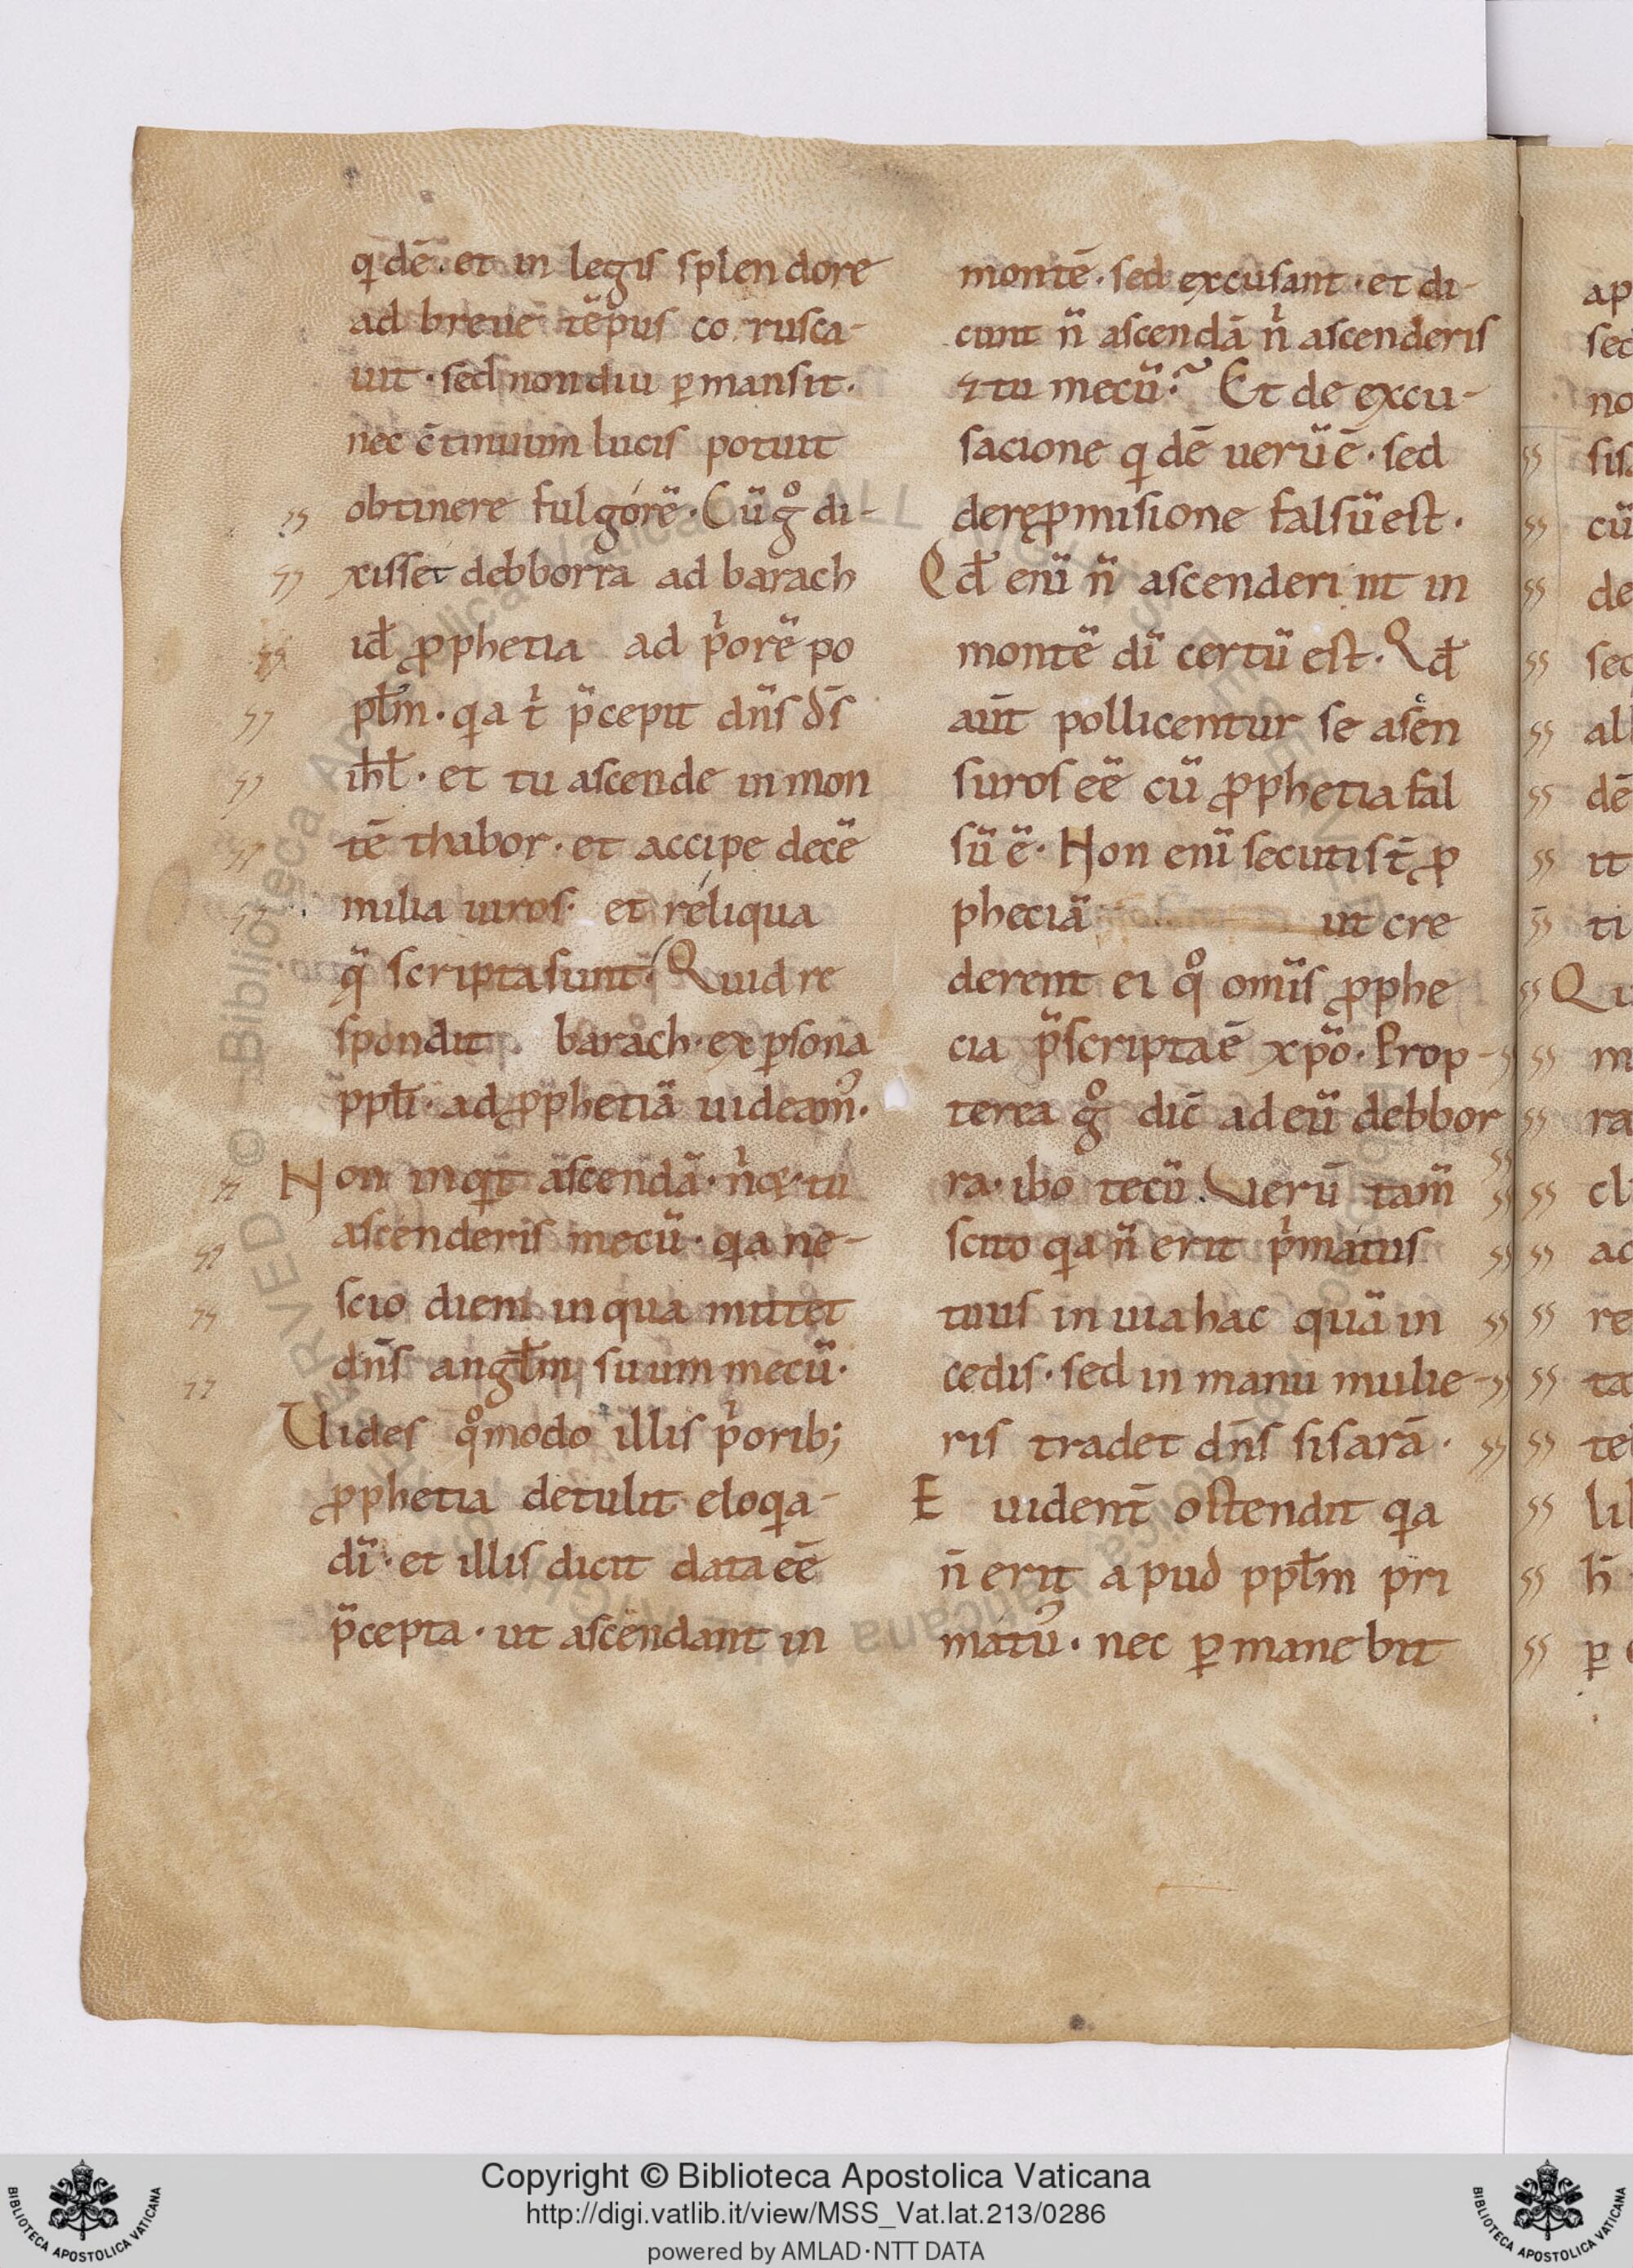 q dē. et in legis splendore
ad breue tēpus co rusca-
uit. sed non diu ꝑmansit.
nec c̄tinuum lucis potuit
obtinere fulgorē. Cū gͦ di-
xisset debborra ad barach
id ł ꝓphetia ad p͛orē po
pl̄m. q a t͛ p̄cepit dn̄s ds̄
ihł. et tu ascende in mon
tē thabor. et accipe decē
milia uiros. et reliqua
q̄ scripta sunt. Quid re
spondit. barach. ex ꝑsona
ppłi. ad ꝓphetiā uideam᾽.
Non inqt ascendā. n͛ & tu
ascenderis mecū. qa ne-
scio diem in qua mittet
dn̄s angłm suum mecū.
Uides qͦmodo illis p͛orib;
ꝓphetia detulit eloqa-
dī. et illis dicit data eē
p̄cepta. ut ascendant in
montē. sed excusant. et di-
cunt n̄ ascendā n͛ ascenderis
⁊ tu mecū. Et de excu-
sacione q dē uerū ē. sed
de reꝓmisione falsū est.
Qđ enī n̄ ascenderint in
montē dī certū est. Qđ
aūt pollicentur se asēn
suros eē cū ꝓphetia fal
sū ē. Non enī secuti st̄ ꝓ
pheciā ut cre
derent ei qͦ omīs ꝓphe
cia p̄scripta ē xp̄o. Prop-
terea gͦ dic̄ ad eū debbor
ra. ibo tecū. Uerū tam̄
scito qa n̄ erit p͛matus
tuus in uia hac quā in
cedis. sed in manu mulie-
ris tradet dn̄s sisarā.
E uident̄ ostendit qa
n̄ erit apud ppłm pri
mat᾽. nec ꝑmanebit
Copyright © Biblioteca Apostolica Vaticana
http://digi.vatlib.it/view/MSS_Vat.lat.213/0286
powered by AMLAD·NTT DATA